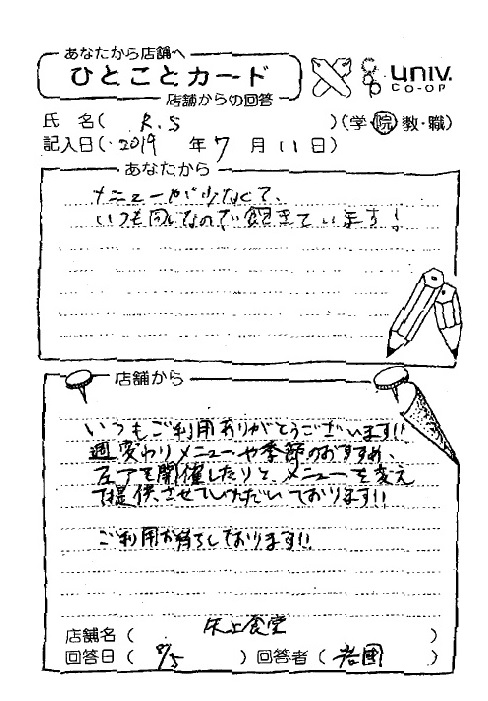 あなたから店舗へ
ひとことカード
店舗からの回答
univ.
CO-OP
氏 名( R.S )(学・院・教・職)
記入日( 2019 年 7 月 11 日)
あなたから
メニューが少なくて、
いつも同じなので飽きています!
店舗から
いつもご利用ありがとうございます!!
週変わりメニューや季節のおすすめ、
フェアを開催したりと メニューを変え
て提供させていただいております!!
ご利用お待ちしております!!
店舗名( 食堂 )
回答日( )回答者( )